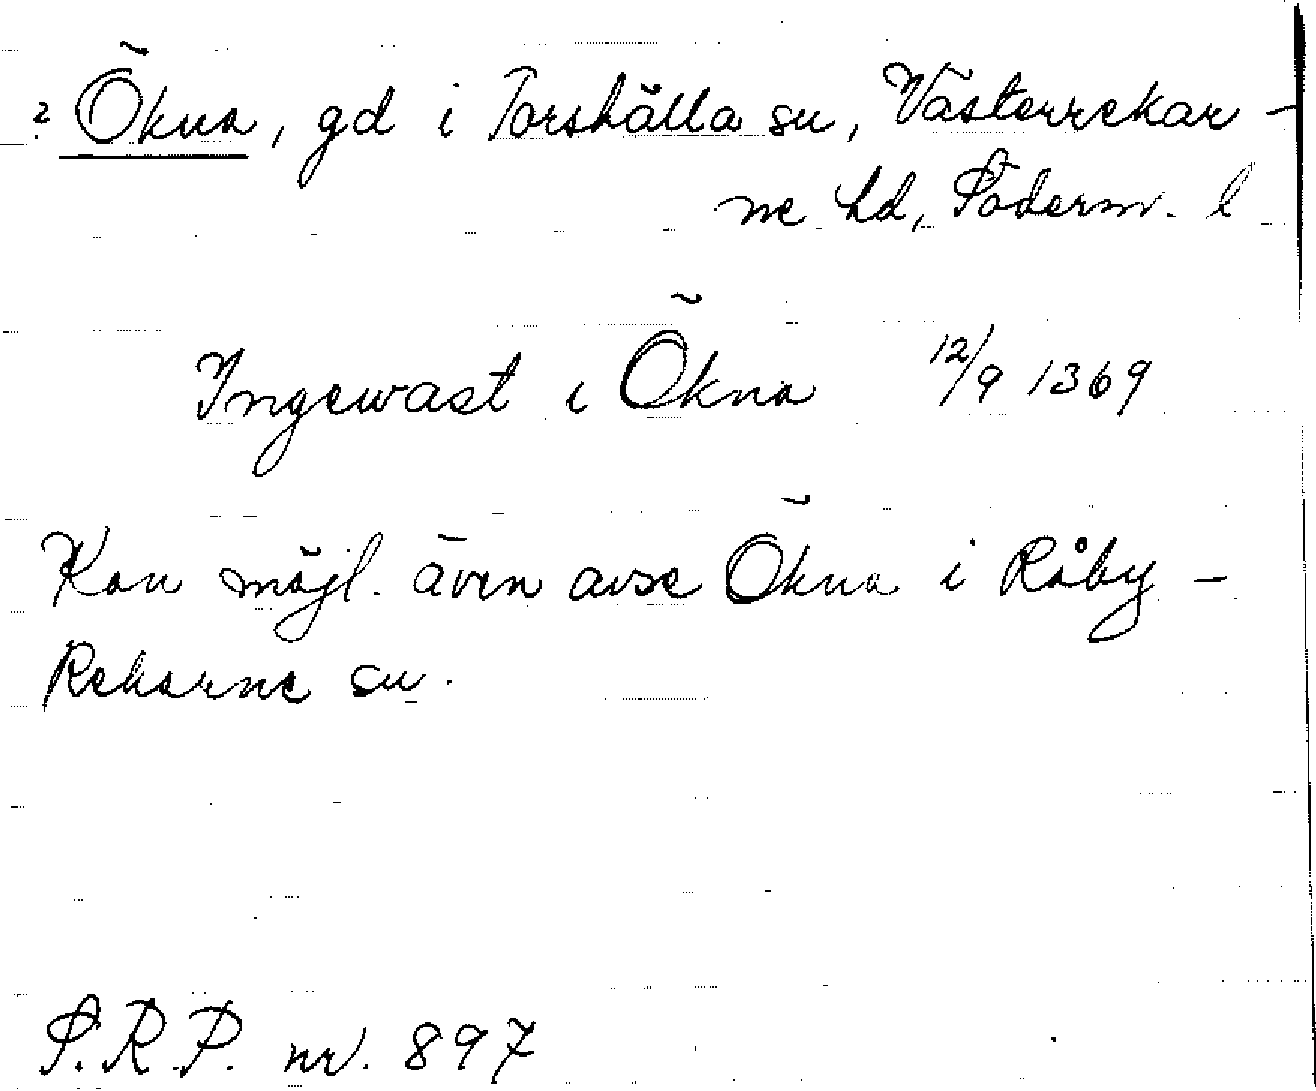 ? Ökna, gd i Torshälla sn, Västerrekar-
ne hd, Söderm. l
Ingewast i Ökna 12/9 1369
Kan möjl. även avse Ökna i Råby-
Rekarne sn.
S.R.P. nr. 897